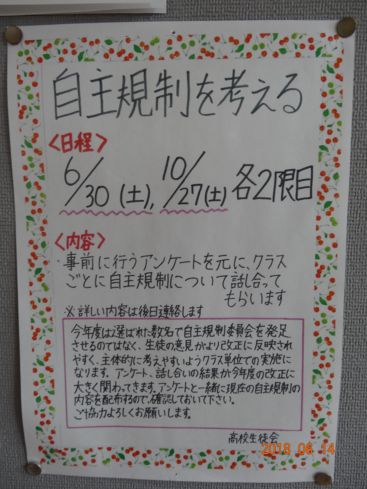 自主規制を考える
<日程>
6/30(土), 10/27(土) 各2限目
<内容>
・事前に行うアンケートを元に、クラス
ごとに自主規制について話し合って
もらいます
※詳しい内容は後日連絡します
今年度は選ばれた数名で自主規制委員会を発足
させるのではなく、生徒の意見がより改正に反映され
やすく、主体的に考えやすいようクラス単位での実施に
なります。アンケート、話し合いの結果が今年度の改正に
大きく関わってきます。アンケートと一緒に現在の自主規制の
内容を配布するので、確認しておいて下さい。
ご協力よろしくお願いします。
高校生徒会
2018 06 14